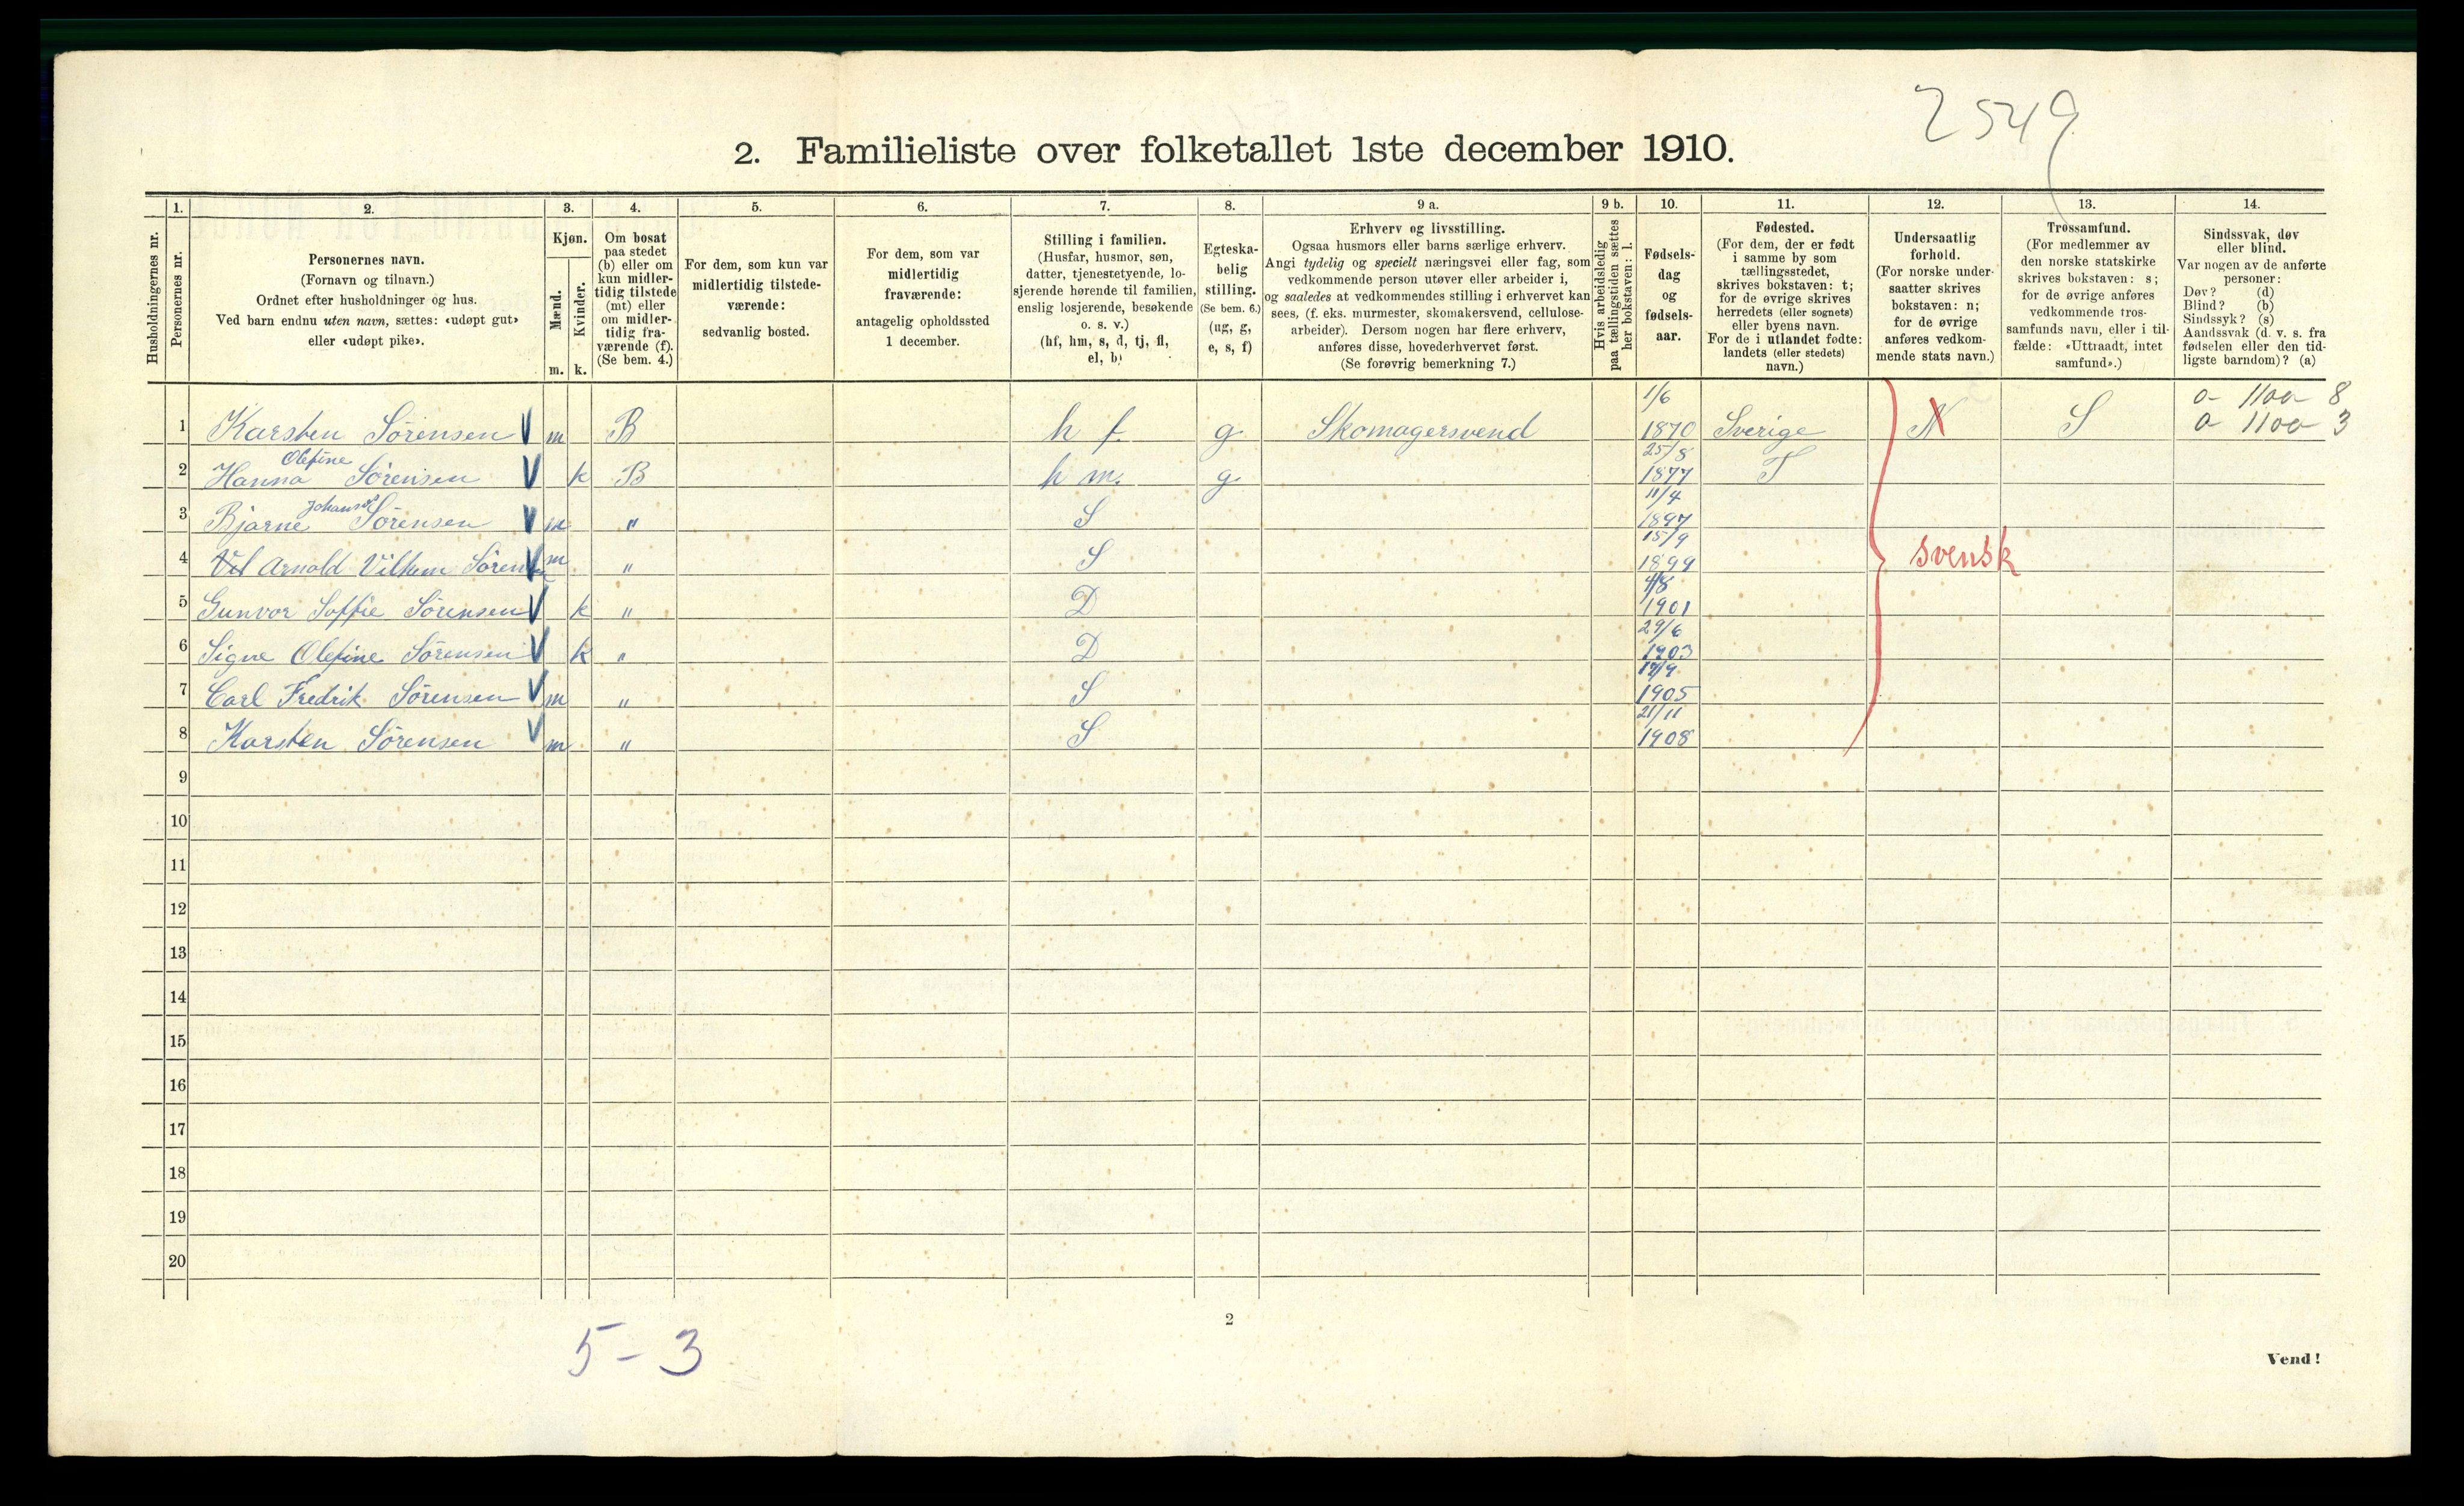 2549
2. Familieliste over folketallet 1ste december 1910.
Husholdningernes nr.
1. Personernes nr.
2. Personernes navn.
(Fornavn og tilnavn.)
Ordnet efter husholdninger og hus.
Ved barn endnu uten navn, sættes: «udøpt gut»
eller «udøpt pike».
3. Kjøn.
Mænd. m.
Kvinder. k.
4. Om bosat
paa stedet
(b) eller om
kun midler-
tidig tilstede
(mt) eller
om midler-
tidig fra-
værende (f).
(Se bem. 4.)
5. For dem, som kun var
midlertidig tilstede-
værende:
sedvanlig bosted.
6. For dem, som var
midlertidig
fraværende:
antagelig opholdssted
1 december.
7. Stilling i familien.
(Husfar, husmor, søn,
datter, tjenestetyende, lo-
sjerende hørende til familien,
enslig losjerende, besøkende
o. s. v.)
(hf, hm, s, d, tj, fl,
el, b)
8. Egteska-
belig
stilling.
(Se bem. 6.)
(ug, g,
e, s, f)
9 a. Erhverv og livsstilling.
Ogsaa husmors eller barns særlige erhverv.
Angi tydelig og specielt næringsvei eller fag, som
vedkommende person utøver eller arbeider i,
og saaledes at vedkommendes stilling i erhvervet kan
sees, (f. eks. murmester, skomakersvend, cellulose-
arbeider). Dersom nogen har flere erhverv,
anføres disse, hovederhvervet først.
(Se forøvrig bemerkning 7.)
9 b. Hvis arbeidsledig
paa tællingstiden sættes
her bokstaven: l.
10. Fødsels-
dag
og
fødsels-
aar.
11. Fødested.
(For dem, der er født
i samme by som
tællingsstedet,
skrives bokstaven: t;
for de øvrige skrives
herredets (eller sognets)
eller byens navn.
For de i utlandet fødte:
landets (eller stedets)
navn.)
12. Undersaatlig
forhold.
(For norske under-
saatter skrives
bokstaven: n;
for de øvrige
anføres vedkom-
mende stats navn.)
13. Trossamfund.
(For medlemmer av
den norske statskirke
skrives bokstaven: s;
for de øvrige anføres
vedkommende tros-
samfunds navn, eller i til-
fælde: «Uttraadt, intet
samfund».)
14. Sindssvak, døv
eller blind.
Var nogen av de anførte
personer:
Døv? (d)
Blind? (b)
Sindssyk? (s)
Aandssvak (d. v. s. fra
fødselen eller den tid-
ligste barndom)? (a)
0- 1100- 8
0- 1100- 3
1 Karsten Sørensen V m B h f. g. Skomagersvend 1/6 1870 Sverige N S
2 Hanna Olefine Sørensen V k B h m. g. 25/8 1877 T
3 Bjarne Sørensen V m " S 11/4 1897
4 Vil Arnold Vilhem Sørensen V m " S 15/9 1899
svensk
5 Gunvor Soffie Sørensen V k " D 4/8 1901
6 Signe Olefine Sørensen V k " D 29/6 1903
7 Carl Fredrik Sørensen V m " S 1905
8 Karsten Sørensen V m " S 21/11 1908
9
10
11
12
13
14
15
16
17
18
19
20
2
5-3
Vend!